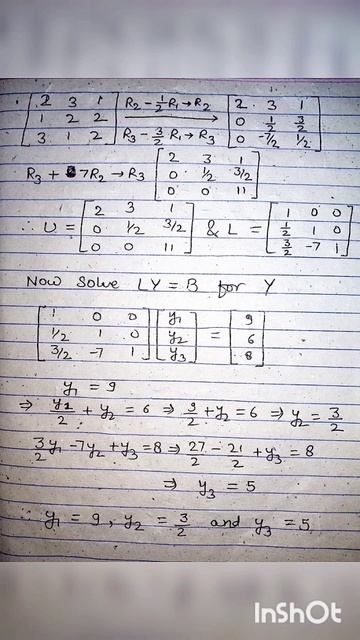 [2 3 1; 1 2 2; 3 1 2] R₂ - 1/2 R₁ → R₂, R₃ - 3/2 R₁ → R₃ [2 3 1; 0 1/2 3/2; 0 -7/2 1/2]
R₃ + 7R₂ → R₃ [2 3 1; 0 1/2 3/2; 0 0 11]
∴ U = [2 3 1; 0 1/2 3/2; 0 0 11] & L = [1 0 0; 1/2 1 0; 3/2 -7 1]
Now Solve LY = B for Y
[1 0 0; 1/2 1 0; 3/2 -7 1] [y₁; y₂; y₃] = [9; 6; 8]
y₁ = 9
⇒ y₁/2 + y₂ = 6 ⇒ 9/2 + y₂ = 6 ⇒ y₂ = 3/2
3/2 y₁ - 7y₂ + y₃ = 8 ⇒ 27/2 - 21/2 + y₃ = 8
⇒ y₃ = 5
∴ y₁ = 9, y₂ = 3/2 and y₃ = 5
InShOt